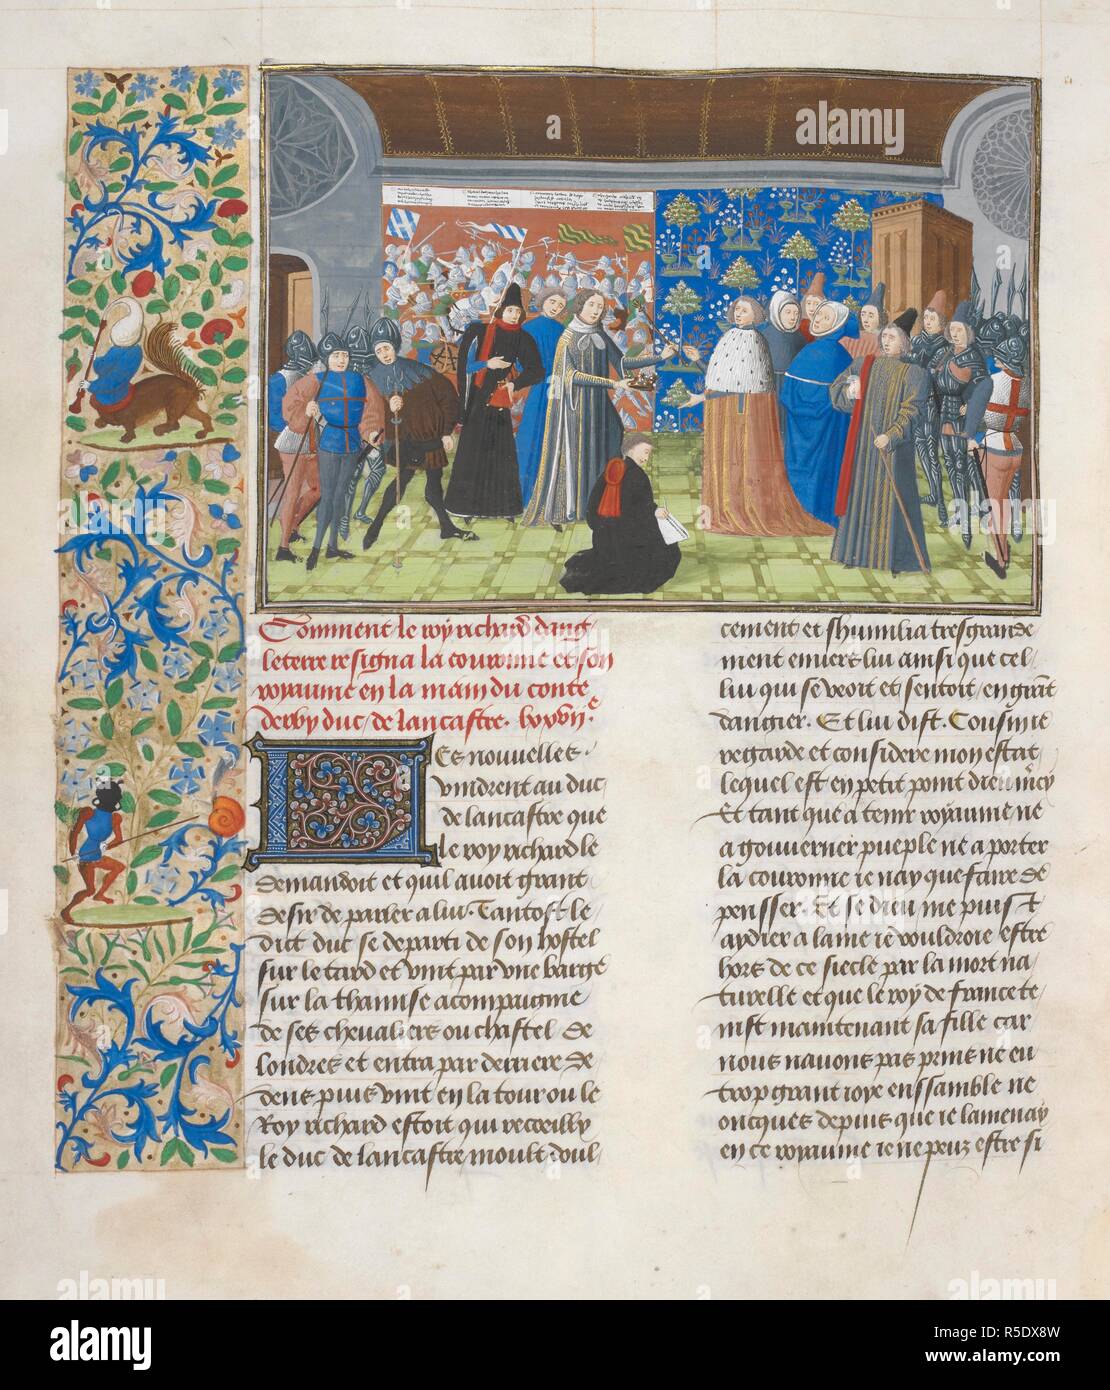 Comment le roy richard dang
leterre resigna la couronne et son
royaume en la main du conte
derby duc de lancastre. lxxviiie
Es nouvelles
vindrent au duc
de lancastre que
le roy richard le
demandoit et quil avoit grant
desir de parler a lui. Tantost le
dict duc se departi de son hostel
sur le tard et vint par une barge
sur la thamise acompaigme
de ses chevaliers ou chastel de
londres et entra par derriere de
dens puis vint en la tour ou le
Roy richard estoit qui recoeilly
le duc de lancastre moult doul
cement et shumilia tresgrande
ment envers lui ainsi que cel
lui qui se veoit et sentoit en grant
dangier. Et lui dist. Cousin ie
regarde et considere mon estat
lequel est en petit point dieu mcy
Et tant que a tenir royaume ne
a gouverner pueple ne a porter
la couronne ie nay que faire de
pensser. Et se dieu me puist
aydier a lame ie vouldroie estre
hors de ce siecle par la mort na
turelle et que le roy de france te
nist maintenant sa fille car
nous navons pas prins ne eu
trop grant joye enssamble ne
oncques depuis que ie lamenay
en ce royaume ie ne peuz estre si
alamy
Image ID: R5DX8W
www.alamy.com